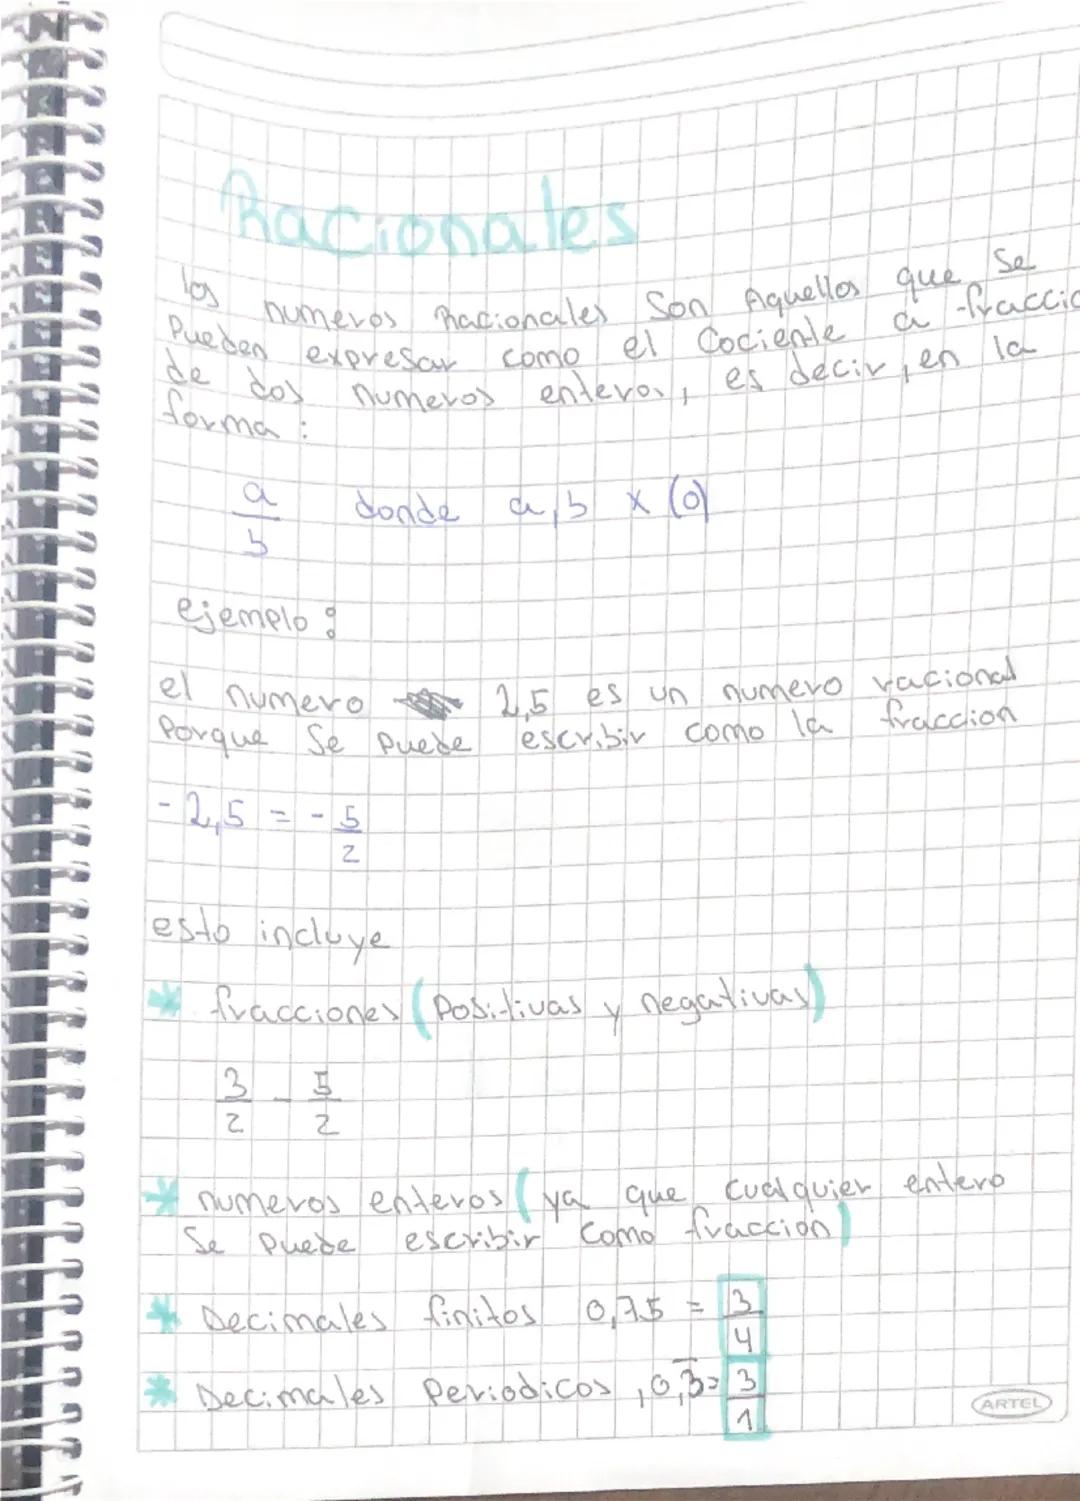 Racionales
los numeros Racionales Son Aquellos que Se
Pueden expresar como el Cociente a fraccio
de dos numeros enteros, es decir, en la
forma:
a/b donde a,b x (0)
ejemplo:
el numero 2,5 es un numero racional
Porque Se Puede escribir como la fraccion
-2,5 = -5/2
esto incluye
* fracciones (Positivas y negativas)
3/2 - 5/2
* numeros enteros (ya que cualquier entero
Se Puede escribir Como fraccion)
* Decimales finitos 0,75 = 3/4
* Decimales Periodicos, 0,3̅= 3/1
ARTEL